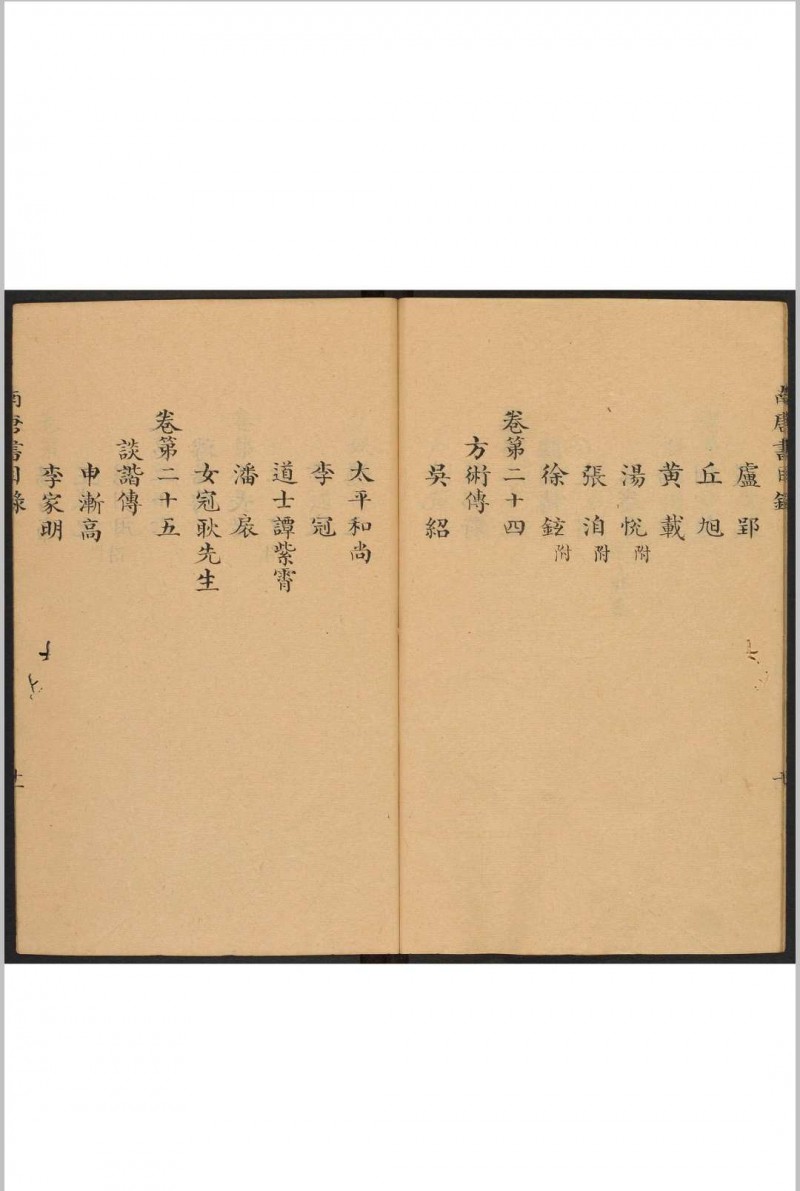 南唐書目錄
盧郢
丘旭
黄載
湯悦附
張洎附
徐鉉附
卷第二十四
方術傳
吳紹
太平和尚
李冠
道士譚紫霄
潘扆
女冠耿先生
卷第二十五
談諧傳
申漸高
李家明
南唐書目錄